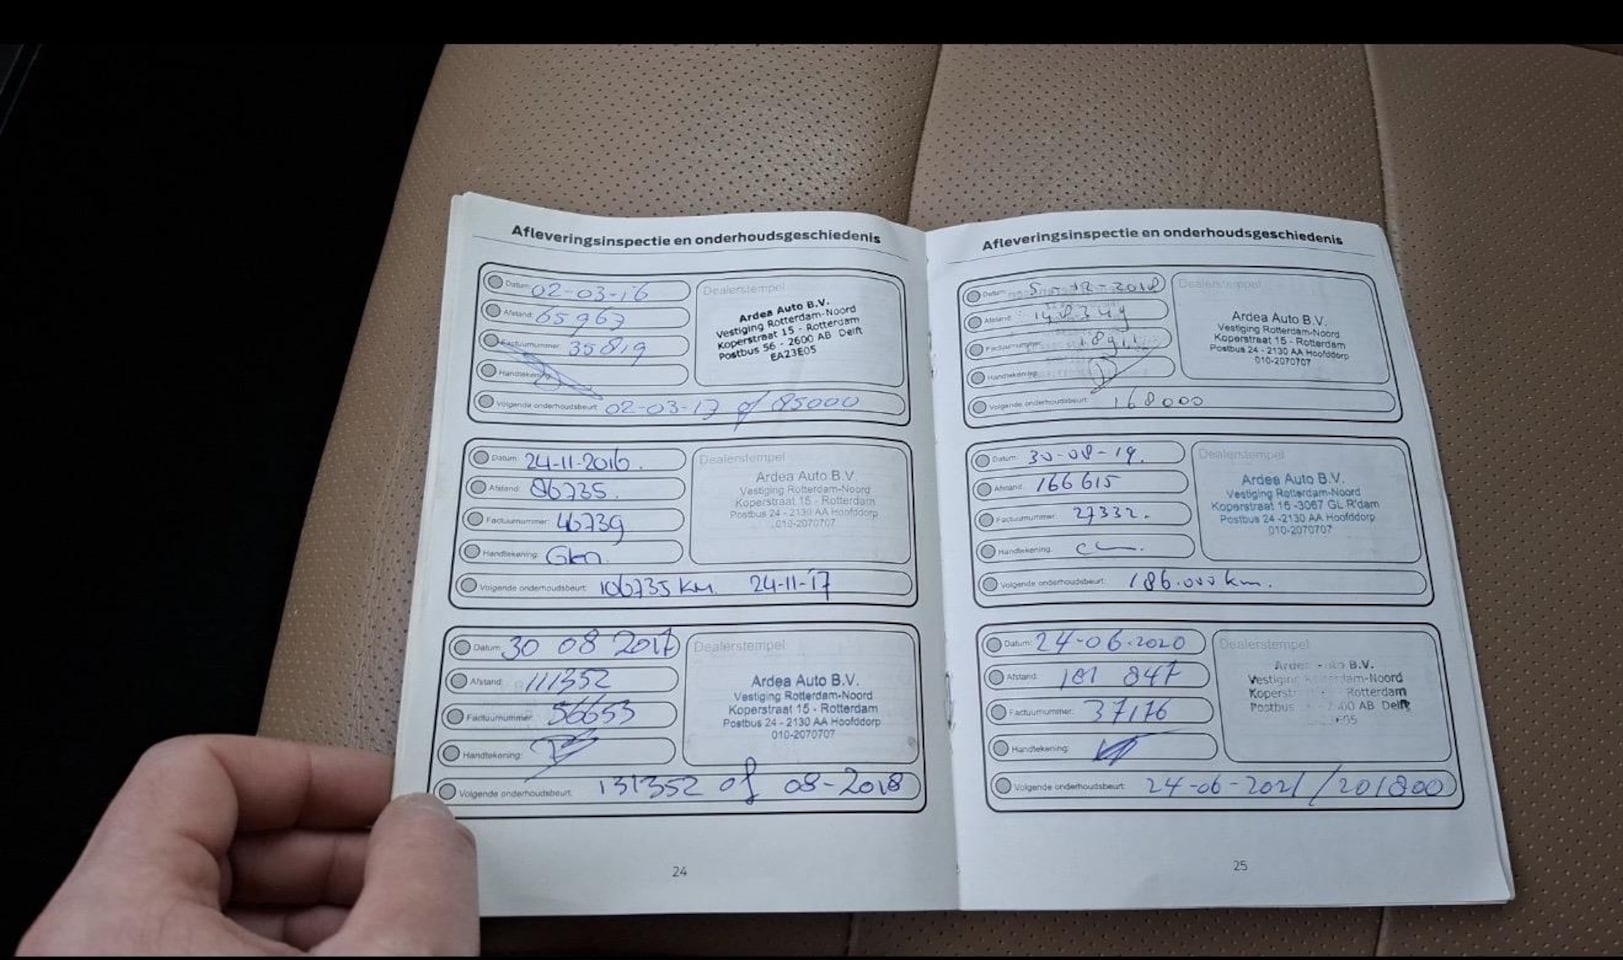 Afleveringsinspectie en onderhoudsgeschiedenis
Datum: 02-03-16
Afstand: 65963
Factuurnummer: 35819
Handtekening:
Volgende onderhoudsbeurt: 02-03-17 of 85000
Dealerstempel
Ardea Auto B.V.
Vestiging Rotterdam-Noord
Koperstraat 15 - Rotterdam
Postbus 56 - 2600 AB Delft
EA23E05
Datum: 24-11-2016.
Afstand: 86735.
Factuurnummer: 46739
Handtekening: Glen
Volgende onderhoudsbeurt: 106735 KM. 24-11-17
Dealerstempel
Ardea Auto B.V.
Vestiging Rotterdam-Noord
Koperstraat 15 - Rotterdam
Postbus 24 - 2130 AA Hoofddorp
010-2070707
Datum: 30 08 2017
Afstand: 111352
Factuurnummer: 56653
Handtekening:
Volgende onderhoudsbeurt: 131352 of 08-2018
Dealerstempel
Ardea Auto B.V.
Vestiging Rotterdam-Noord
Koperstraat 15 - Rotterdam
Postbus 24 - 2130 AA Hoofddorp
010-2070707
24
Afleveringsinspectie en onderhoudsgeschiedenis
Datum: 5-12-2018
Afstand:
Factuurnummer:
Handtekening:
Volgende onderhoudsbeurt: 168000
Dealerstempel
Ardea Auto B.V.
Vestiging Rotterdam-Noord
Koperstraat 15 - Rotterdam
Postbus 24 - 2130 AA Hoofddorp
010-2070707
Datum: 30-08-19.
Afstand: 166615
Factuurnummer: 27332.
Handtekening:
Volgende onderhoudsbeurt: 186.000 km.
Dealerstempel
Ardea Auto B.V.
Vestiging Rotterdam-Noord
Koperstraat 15 -3067 GL R'dam
Postbus 24 -2130 AA Hoofddorp
010-2070707
Datum: 24-06-2020
Afstand: 181 847
Factuurnummer: 37176
Handtekening:
Volgende onderhoudsbeurt: 24-06-2021 / 201800
Dealerstempel
B.V.
Vestiging
Rotterdam
Postbus AB Delft
25